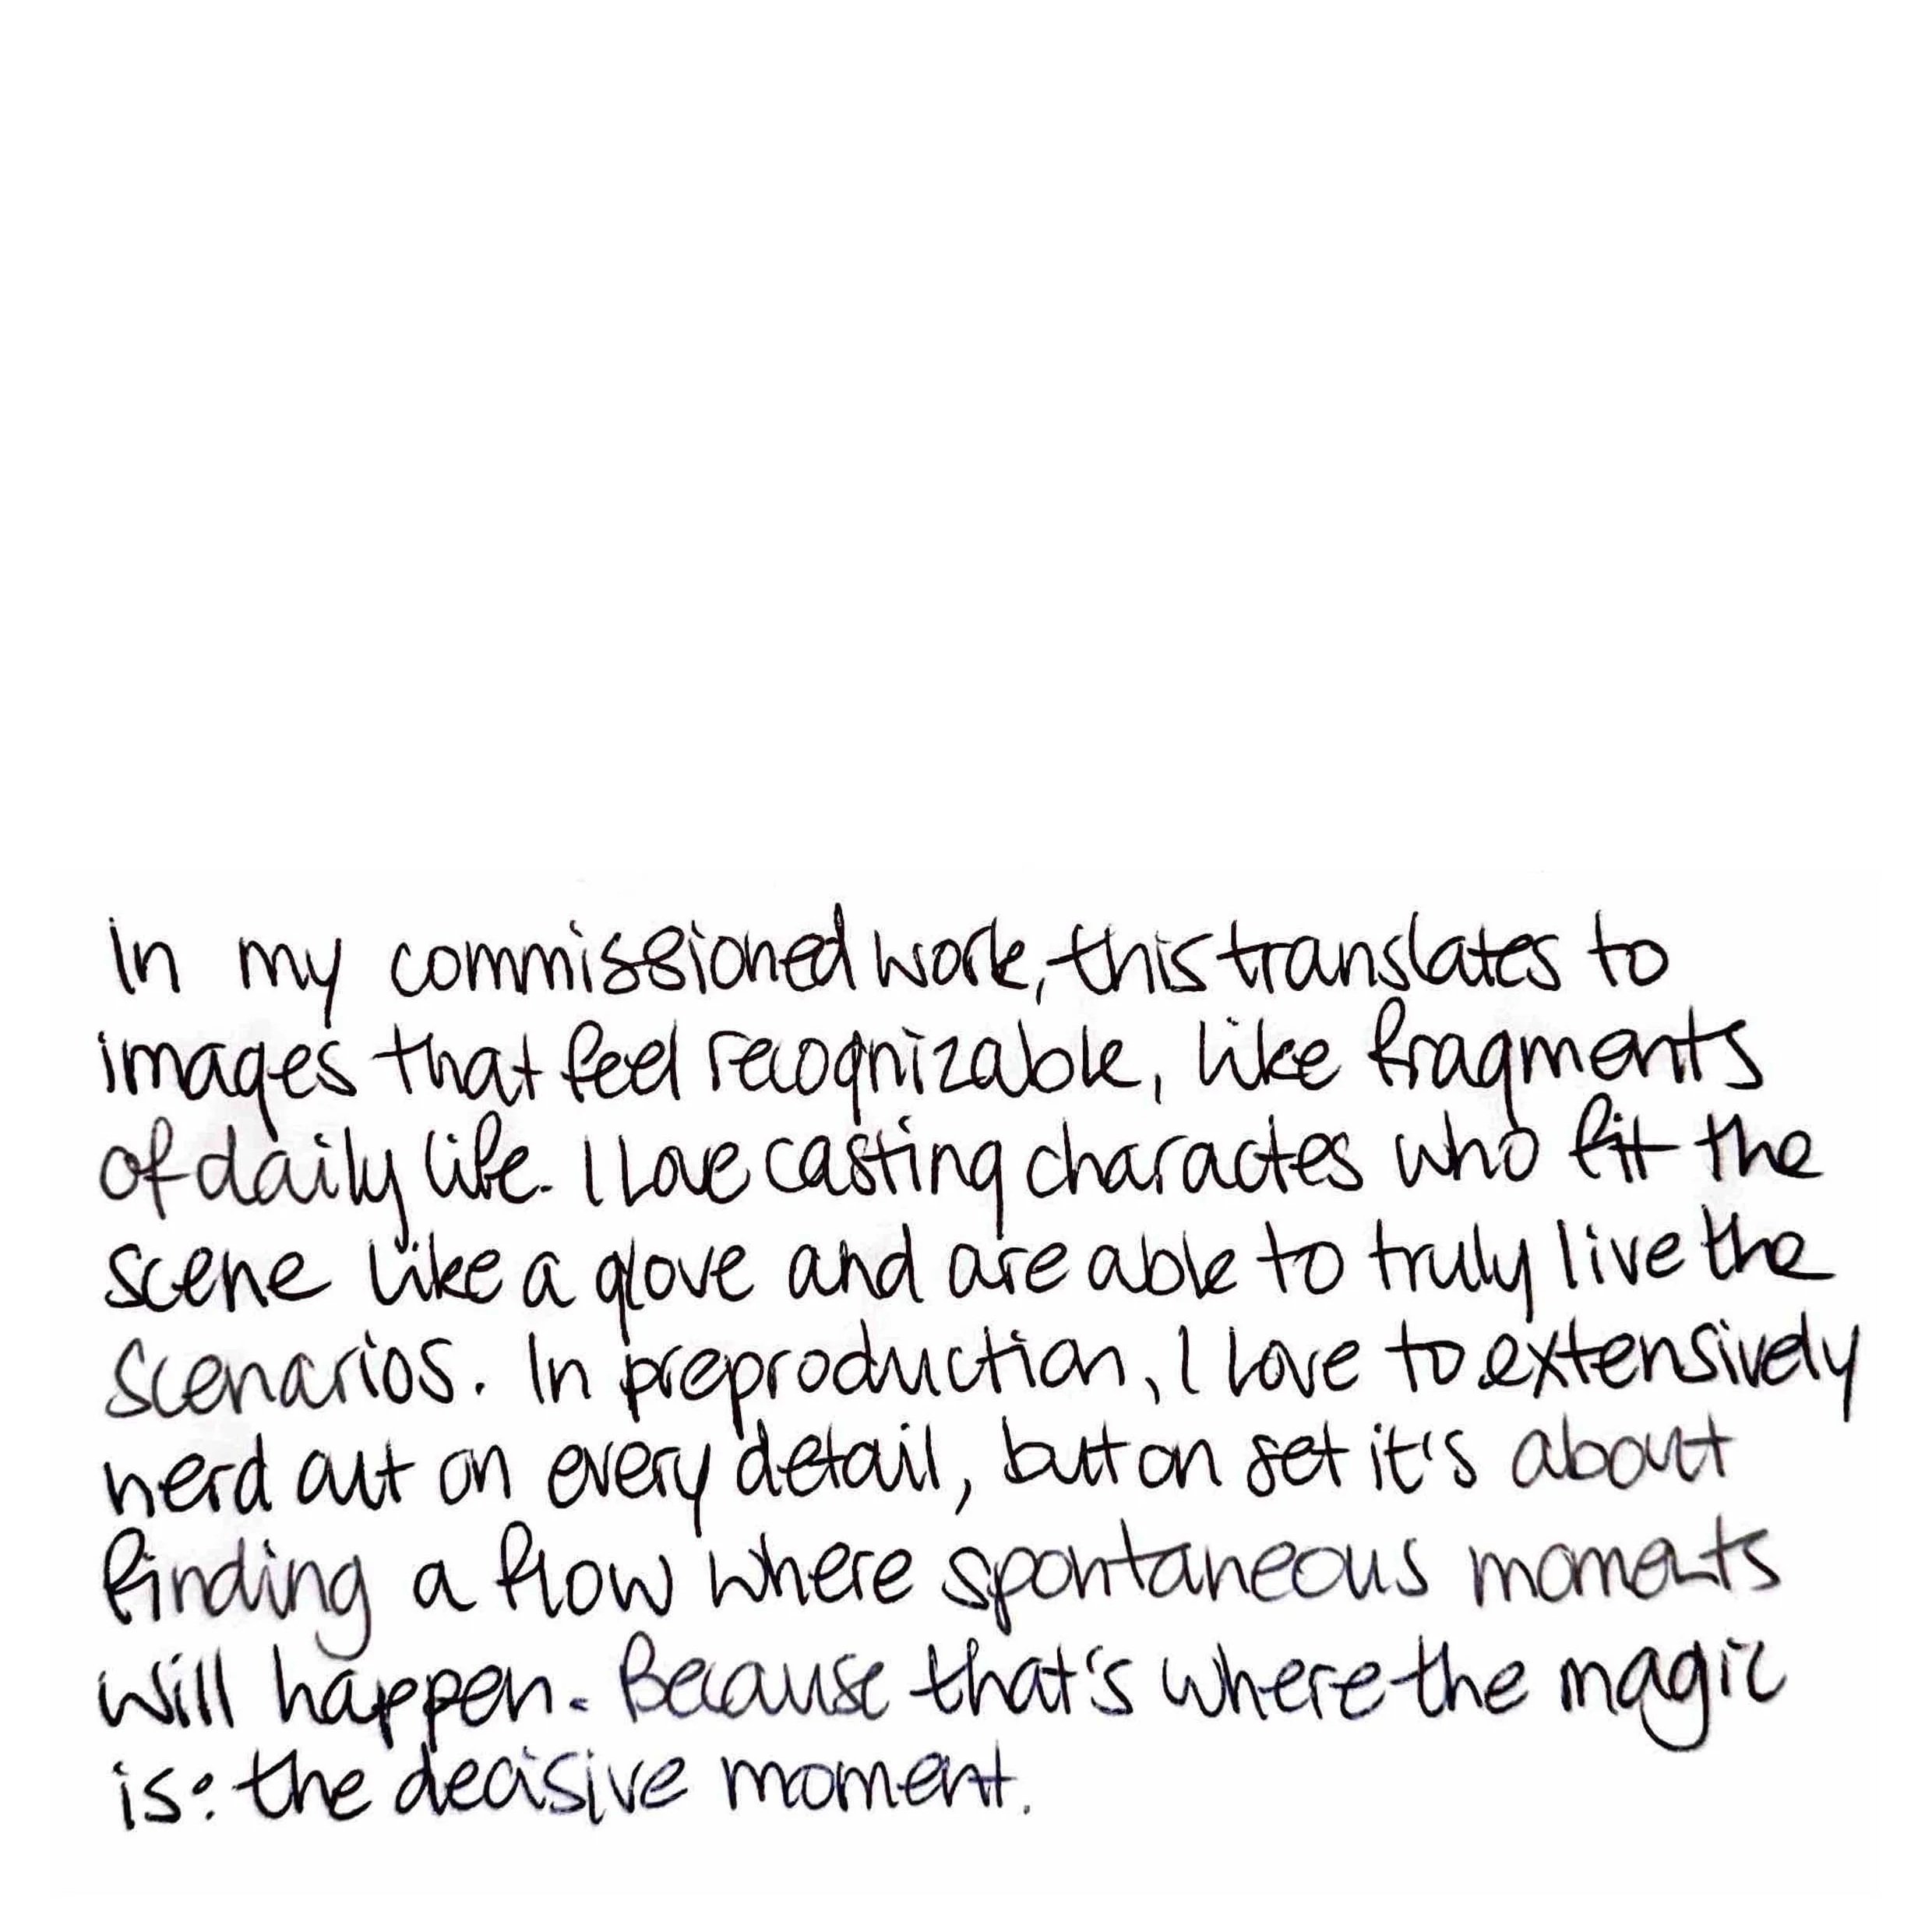 In my commissioned work, this translates to
images that feel recognizable, like fragments
of daily life. I love casting charactes who fit the
scene like a glove and are able to truly live the
scenarios. In preproduction, I love to extensively
nerd out on every detail, but on set it's about
finding a flow where spontaneous moments
will happen. Because that's where the magic
is: the decisive moment.